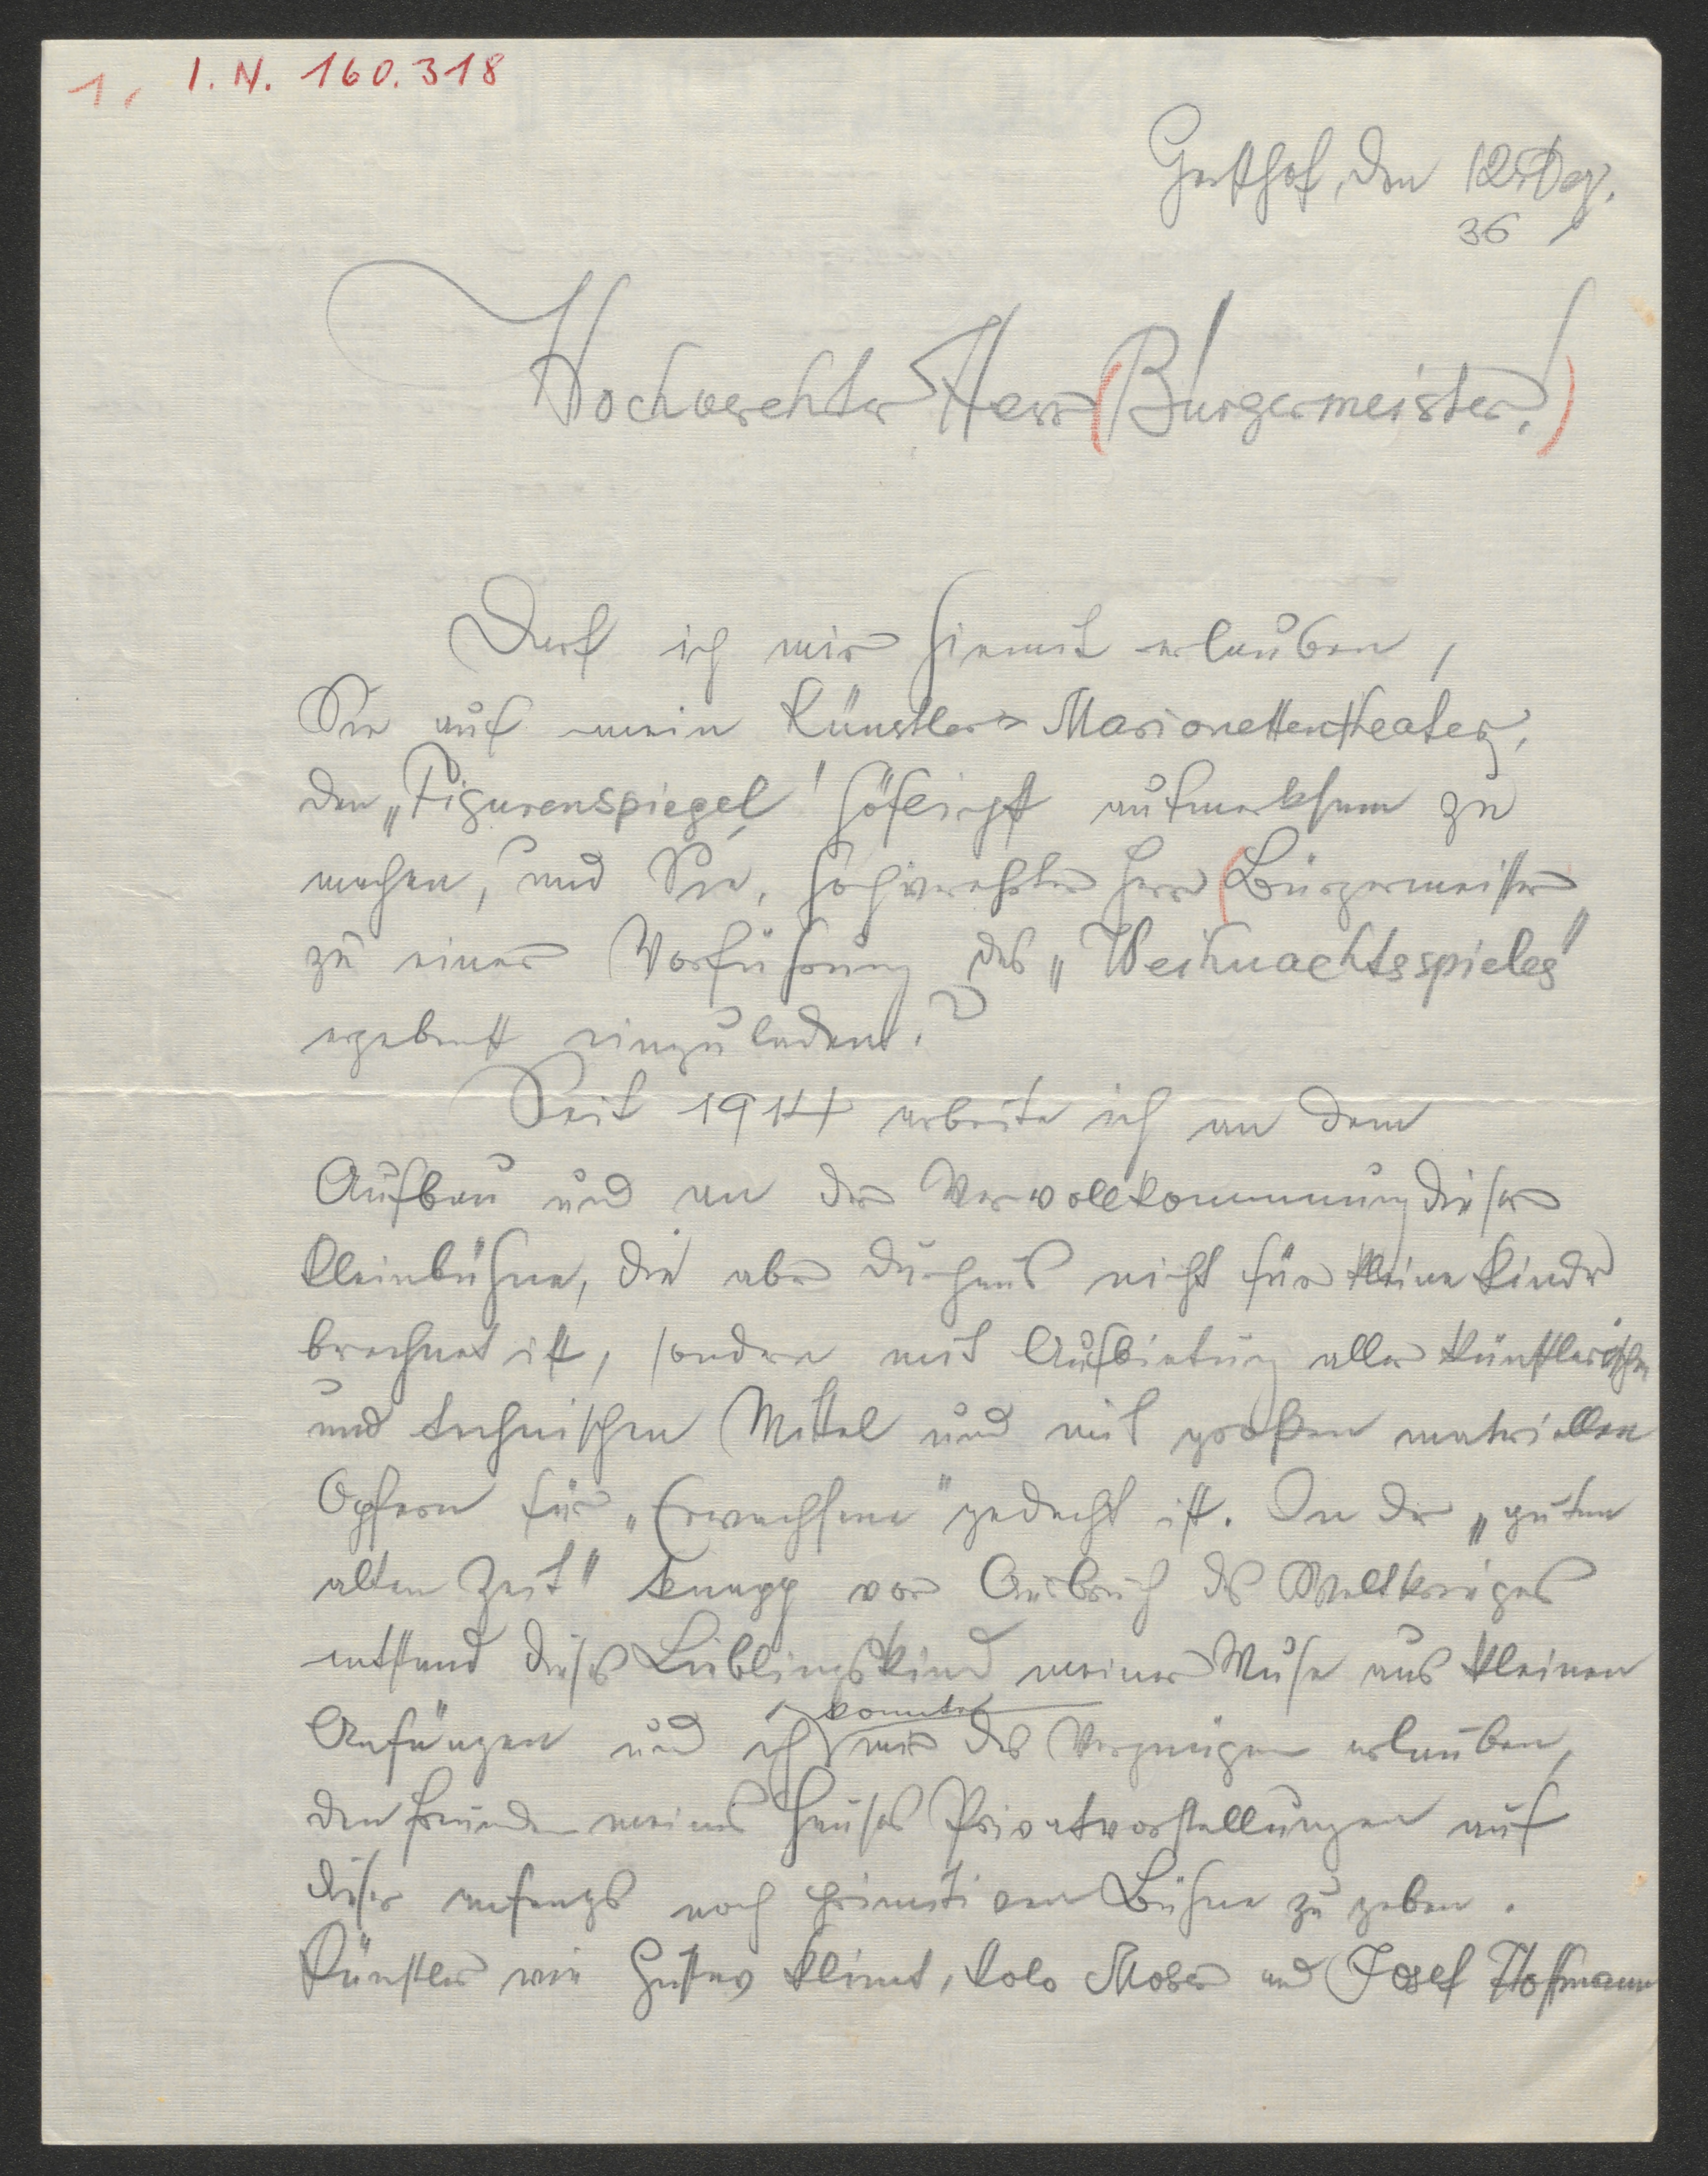 1. I. N. 160.318
Gersthof, den 12. Dez.
36
Hochverehrter Herr (Bürgermeister!)
Darf ich mir hiemit erlauben,
Sie auf mein Künstler-Marionettentheater,
den „Figurenspiegel" höflichst aufmerksam zu
machen, und Sie, hochverehrter Herr (Bürgermeister
zu einer Vorführung des „Weihnachtsspieles"
ergebenst einzuladen.?
Seit 1914 arbeite ich an dem
Aufbau und an der Vervollkommnung dieser
Kleinbühne, die aber durchaus nicht für kleine Kinder
berechnet ist, sondern mit Aufbietung aller künstlerischen
und technischen Mittel und mit großen materiellen
Opfern für „Erwachsene" gedacht ist. In der „guten
alten Zeit" knapp vor Ausbruch des Weltkrieges
entstand dieses Lieblingskind meiner Muse aus kleinen
Anfängen und ich konnte mir das Vergnügen erlauben,
den Freunden meines Hauses Privatvorstellungen auf
dieser anfangs noch primitiven Bühne zu geben.
Künstler wie Gustav Klimt, Kolo Moser und Josef Hoffmann